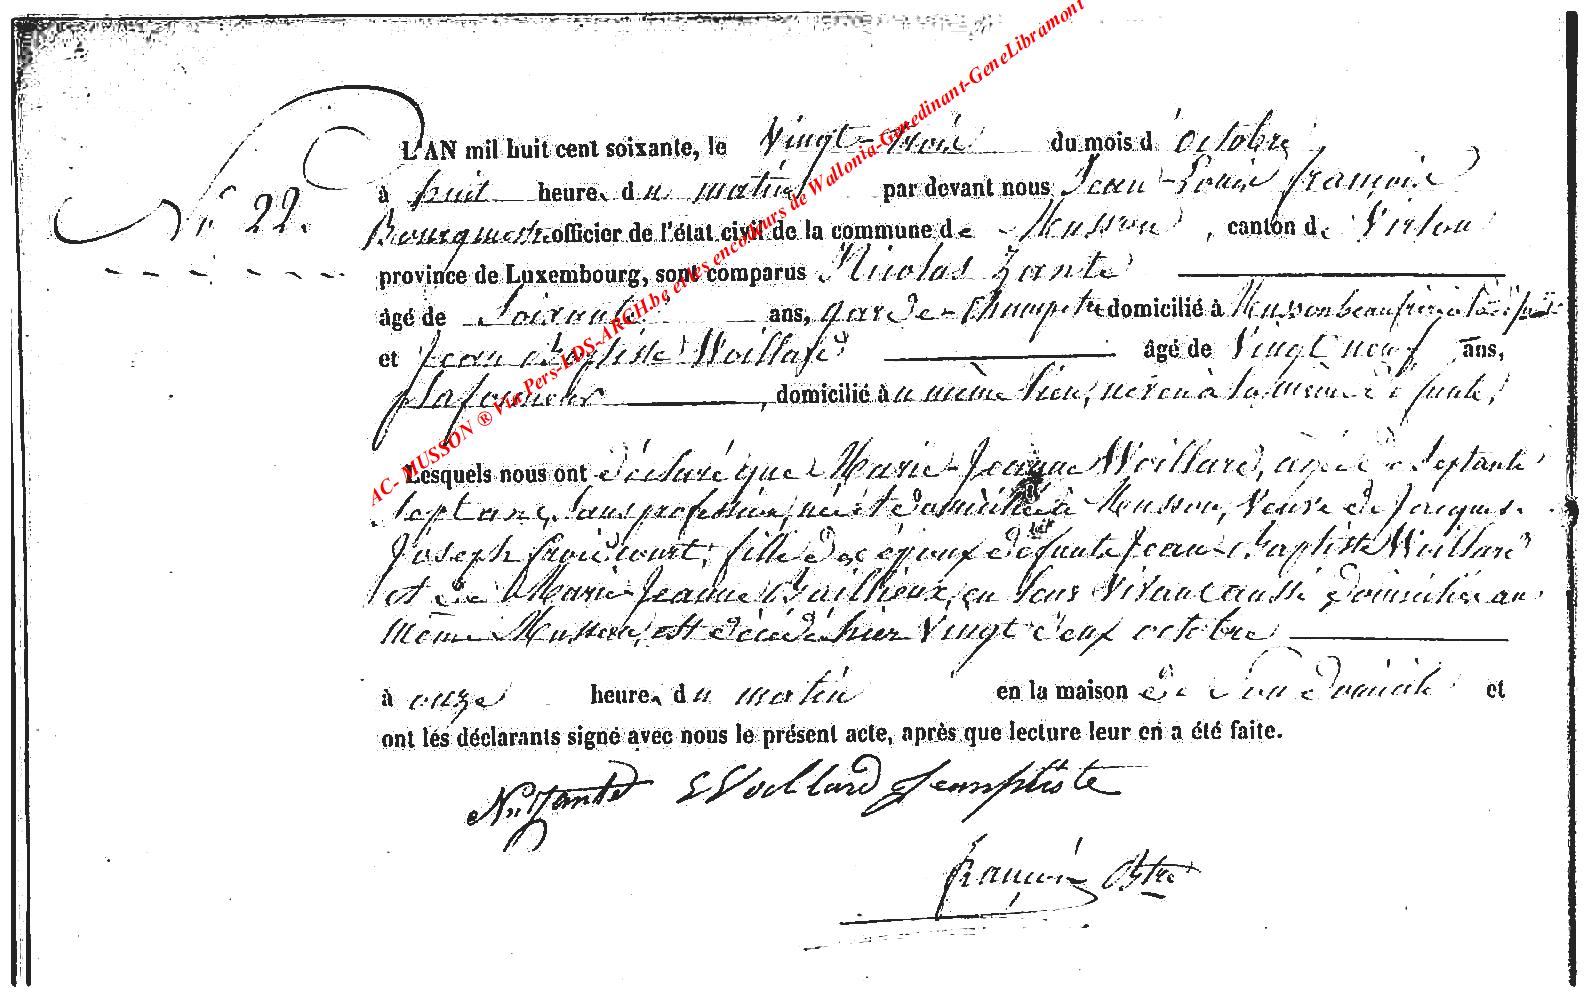 N° 22.
L'AN mil huit cent soixante, le Vingt-trois du mois d'octobre
à huit heure du matin par devant nous Jean-Louis françois
Bourgmestre officier de l'état civil de la commune de Musson, canton de Virton
province de Luxembourg, sont comparus Nicolas Zante
âgé de Soixante ans, garde-Champetre domicilié à Musson beaufrère à la
et Jean Baptiste Woillard âgé de Vingt neuf ans,
plafonneur, domicilié au même lieu, neveu à la même défunte,
Lesquels nous ont déclaré que Marie-Jeanne Woillard, agée de Septante
Sept ans, Sans profession, née et domiciliée à Musson, Veuve de Jacques-
Joseph, fille des époux defunts Jean-Baptiste Woillard
et de Marie-Jeanne Baillieux, en leur Vivant aussi domiciliés au
même Musson, est décédée hier Vingt deux octobre
à onze heure du matin en la maison de Son domicile et
ont les déclarants signé avec nous le présent acte, après que lecture leur en a été faite.
Ns Zante Woillard Jean ptiste
françois Bstre
AC- MUSSON ® Via Pers-LDS-ARCH.be et les encodeurs de Wallonia-Genedinant-GeneLibramont